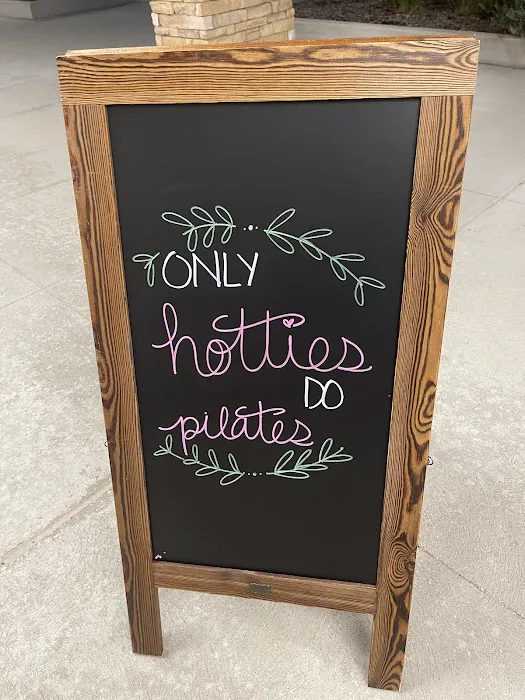 ONLY
hotties
DO
pilates